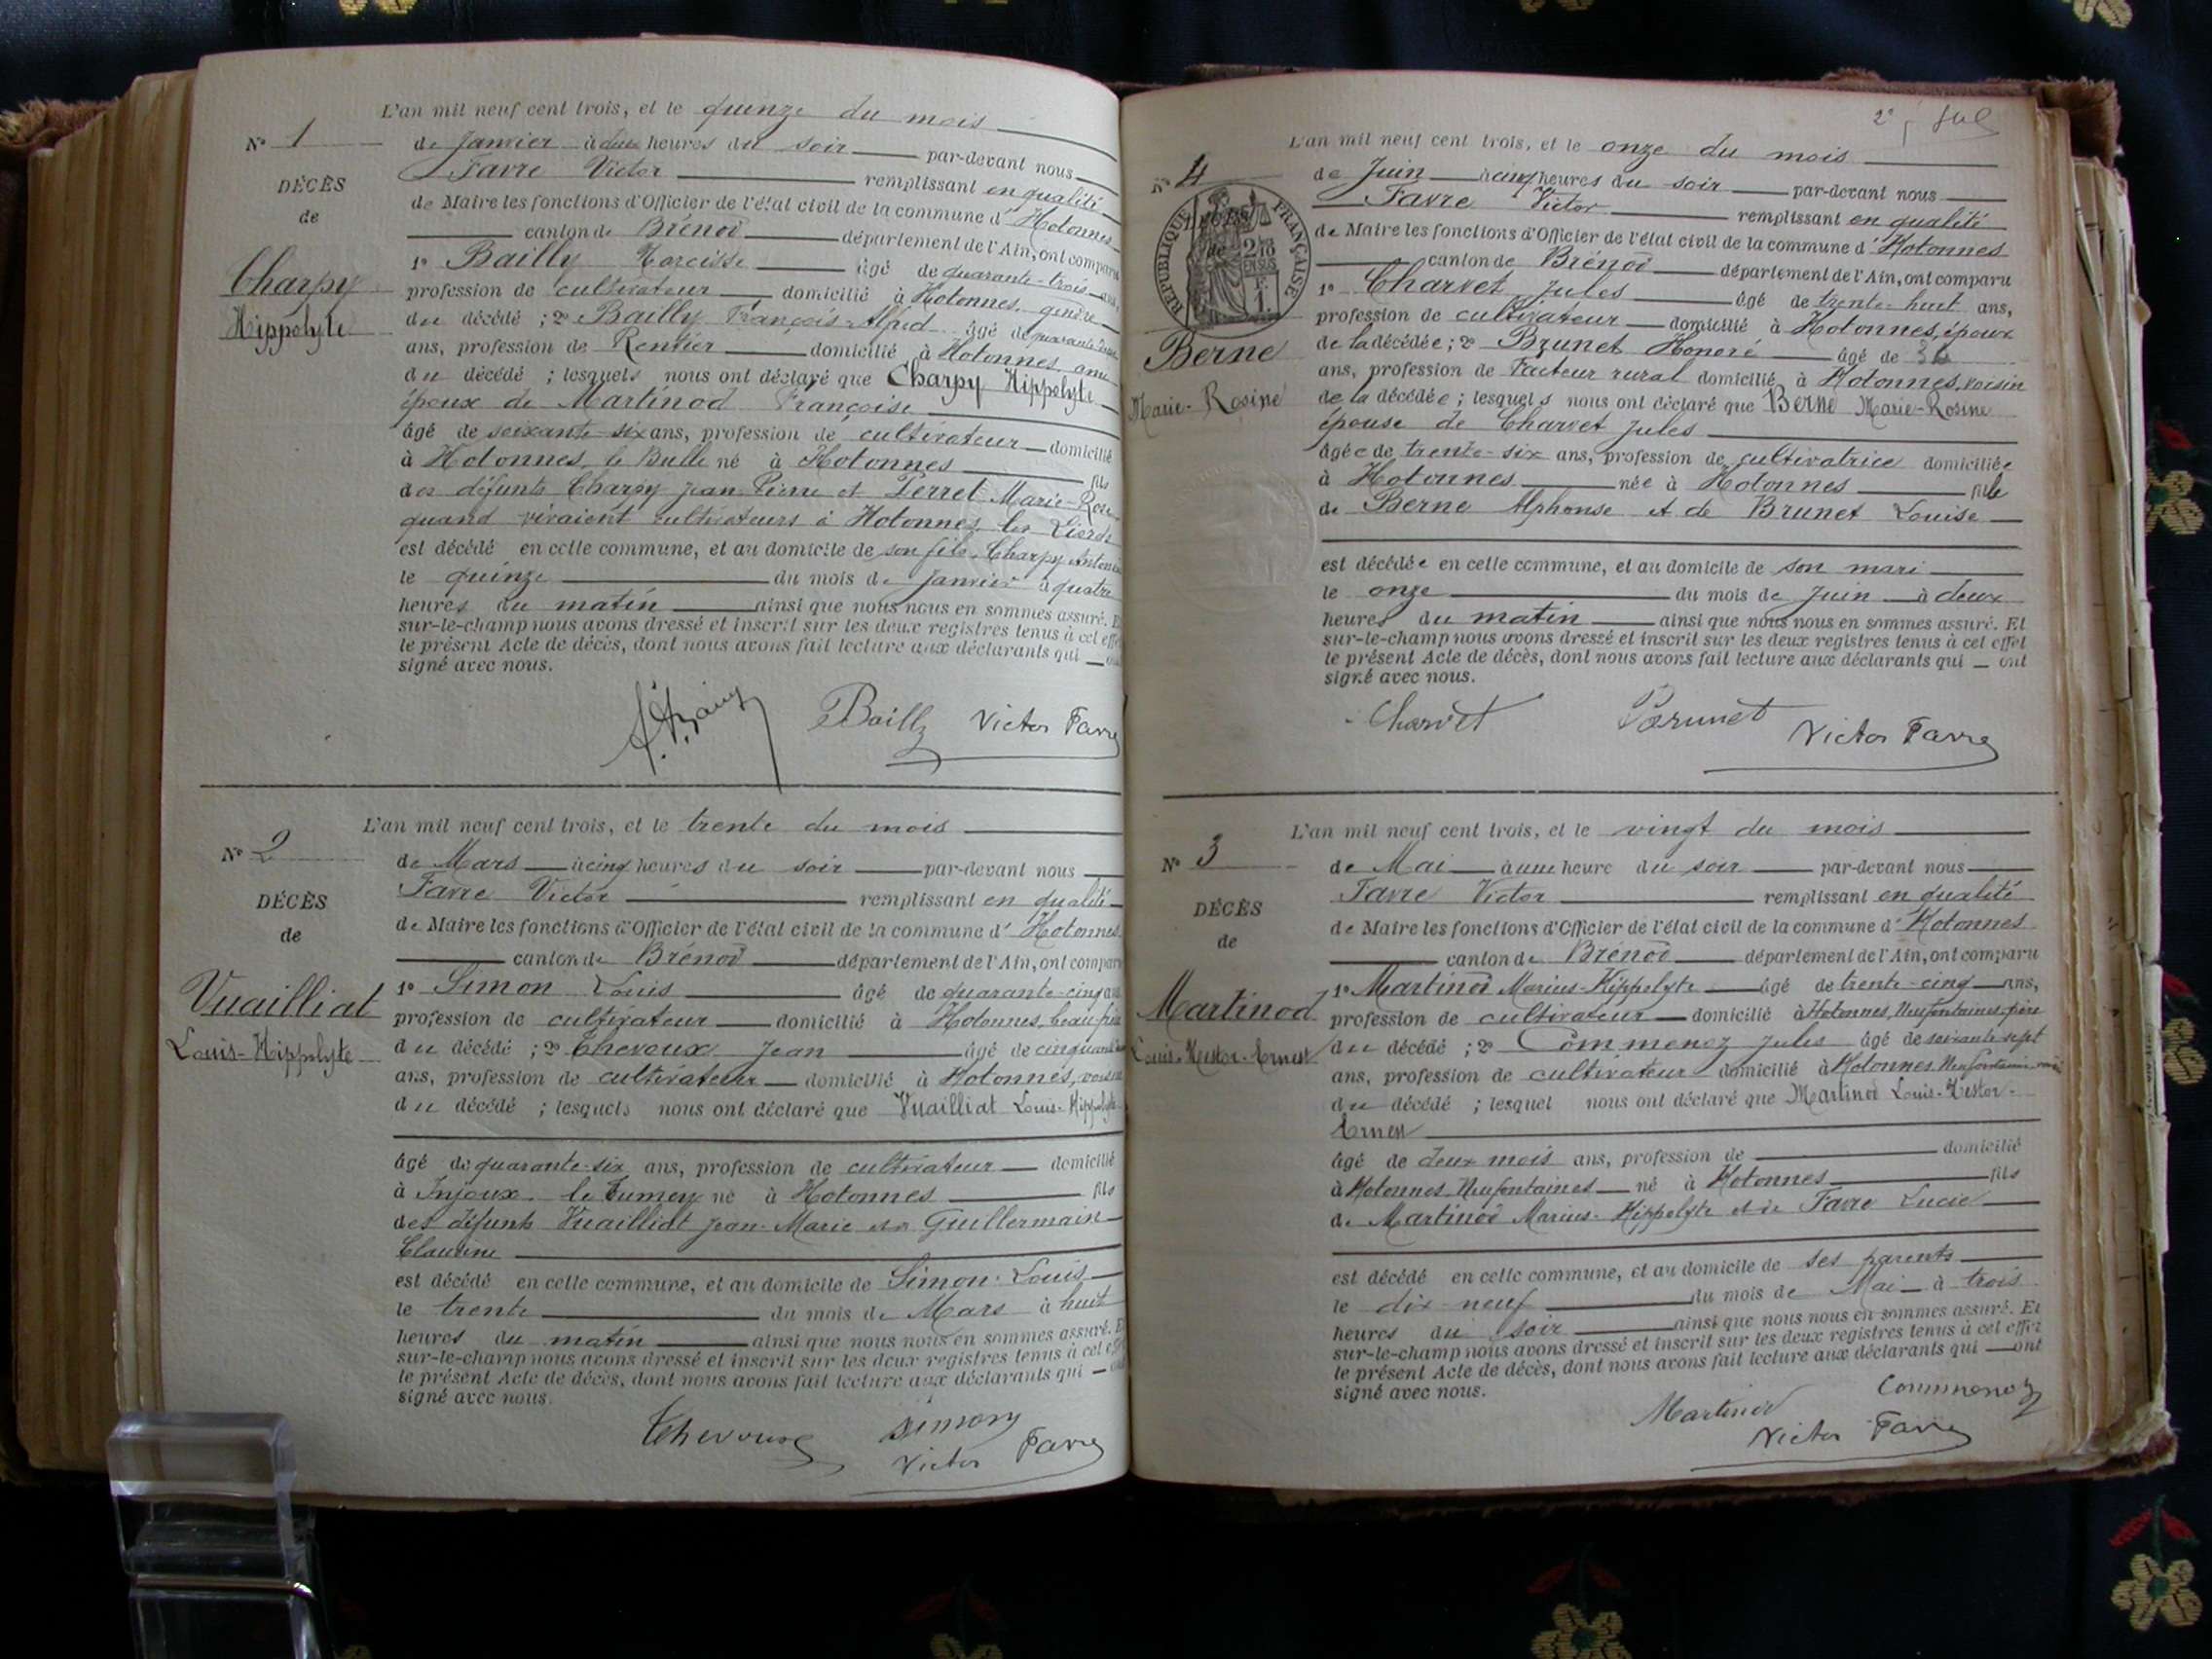 L'an mil neuf cent trois, et le quinze du mois
N° 1
de Janvier à deux heures du soir par-devant nous
Favre Victor remplissant en qualité
DÉCÈS
de Maire les fonctions d'Officier de l'état civil de la commune d' Hotonnes
de
canton de Brénod département de l'Ain, ont comparu
1° Bailly Narcisse âgé de quarante-trois ans
Charpy
profession de cultivateur domicilié à Hotonnes, gendre
Hippolyte
du décédé ; 2° Bailly François-Alfred âgé de
ans, profession de Rentier domicilié à Hotonnes, ami
du décédé ; lesquels nous ont déclaré que Charpy Hippolyte
époux de Martinod Françoise
âgé de soixante-six ans, profession de cultivateur domicilié
à Hotonnes, le Bulle né à Hotonnes fils
des défunts Charpy Jean-Pierre et Perret Marie-Rose
quand vivaient cultivateurs à Hotonnes, les
est décédé en cette commune, et au domicile de son fils, Charpy
le quinze du mois de Janvier à quatre
heures du matin ainsi que nous nous en sommes assuré. Et
sur-le-champ nous avons dressé et inscrit sur les deux registres tenus à cet effet
le présent Acte de décès, dont nous avons fait lecture aux déclarants qui ont
signé avec nous.
Bailly Victor Favre
L'an mil neuf cent trois, et le trente du mois
N° 2
de Mars à cinq heures du soir par-devant nous
Favre Victor remplissant en qualité
DÉCÈS
de Maire les fonctions d'Officier de l'état civil de la commune d' Hotonnes
de
canton de Brénod département de l'Ain, ont comparu
Vuailliat
1° Simon Louis âgé de quarante-cinq ans
profession de cultivateur domicilié à Hotonnes, beau-frère
Louis-Hippolyte
du décédé ; 2° Chevoux Jean âgé de cinquante
ans, profession de cultivateur domicilié à Hotonnes, voisin
du décédé ; lesquels nous ont déclaré que Vuailliat Louis-Hippolyte
âgé de quarante-six ans, profession de cultivateur domicilié
à Injoux, le Tumey né à Hotonnes fils
des défunts Vuailliat Jean-Marie et Guillermain
Claudine
est décédé en cette commune, et au domicile de Simon Louis
le trente du mois de Mars à huit
heures du matin ainsi que nous nous en sommes assuré. Et
sur-le-champ nous avons dressé et inscrit sur les deux registres tenus à cet effet
le présent Acte de décès, dont nous avons fait lecture aux déclarants qui ont
signé avec nous.
Chevoux Simon
Victor Favre
2e
L'an mil neuf cent trois, et le onze du mois
N° 4
de Juin à cinq heures du soir par-devant nous
Favre Victor remplissant en qualité
RÉPUBLIQUE FRANÇAISE
de Maire les fonctions d'Officier de l'état civil de la commune d' Hotonnes
canton de Brénod département de l'Ain, ont comparu
1° Charvet Jules âgé de trente-huit ans,
profession de cultivateur domicilié à Hotonnes, époux
Berne
de la décédée ; 2° Brunet Honoré âgé de
ans, profession de Facteur rural domicilié à Hotonnes, voisin
Marie-Rosine
de la décédée ; lesquels nous ont déclaré que Berne Marie-Rosine
épouse de Charvet Jules
âgée de trente-six ans, profession de cultivatrice domiciliée
à Hotonnes née à Hotonnes fille
de Berne Alphonse et de Brunet Louise
est décédée en cette commune, et au domicile de son mari
le onze du mois de Juin à deux
heures du matin ainsi que nous nous en sommes assuré. Et
sur-le-champ nous avons dressé et inscrit sur les deux registres tenus à cet effet
le présent Acte de décès, dont nous avons fait lecture aux déclarants qui ont
signé avec nous.
Charvet Brunet Victor Favre
L'an mil neuf cent trois, et le vingt du mois
N° 3
de Mai à une heure du soir par-devant nous
Favre Victor remplissant en qualité
DÉCÈS
de Maire les fonctions d'Officier de l'état civil de la commune d' Hotonnes
de
canton de Brénod département de l'Ain, ont comparu
Martinod
1° Martinod Marius-Hippolyte âgé de trente-cinq ans,
profession de cultivateur domicilié à Hotonnes, Neufontaines, père
Louis-Nestor-Ernest
du décédé ; 2° Commenoz Jules âgé de soixante sept
ans, profession de cultivateur domicilié à Hotonnes, Neufontaines
du décédé ; lesquel nous ont déclaré que Martinod Louis-Nestor-
Ernest
âgé de deux mois ans, profession de domicilié
à Hotonnes, Neufontaines né à Hotonnes fils
de Martinod Marius-Hippolyte et de Favre Lucie
est décédé en cette commune, et au domicile de ses parents
le dix-neuf du mois de Mai à trois
heures du soir ainsi que nous nous en sommes assuré. Et
sur-le-champ nous avons dressé et inscrit sur les deux registres tenus à cet effet
le présent Acte de décès, dont nous avons fait lecture aux déclarants qui ont
signé avec nous.
Commenoz
Martinod
Victor Favre